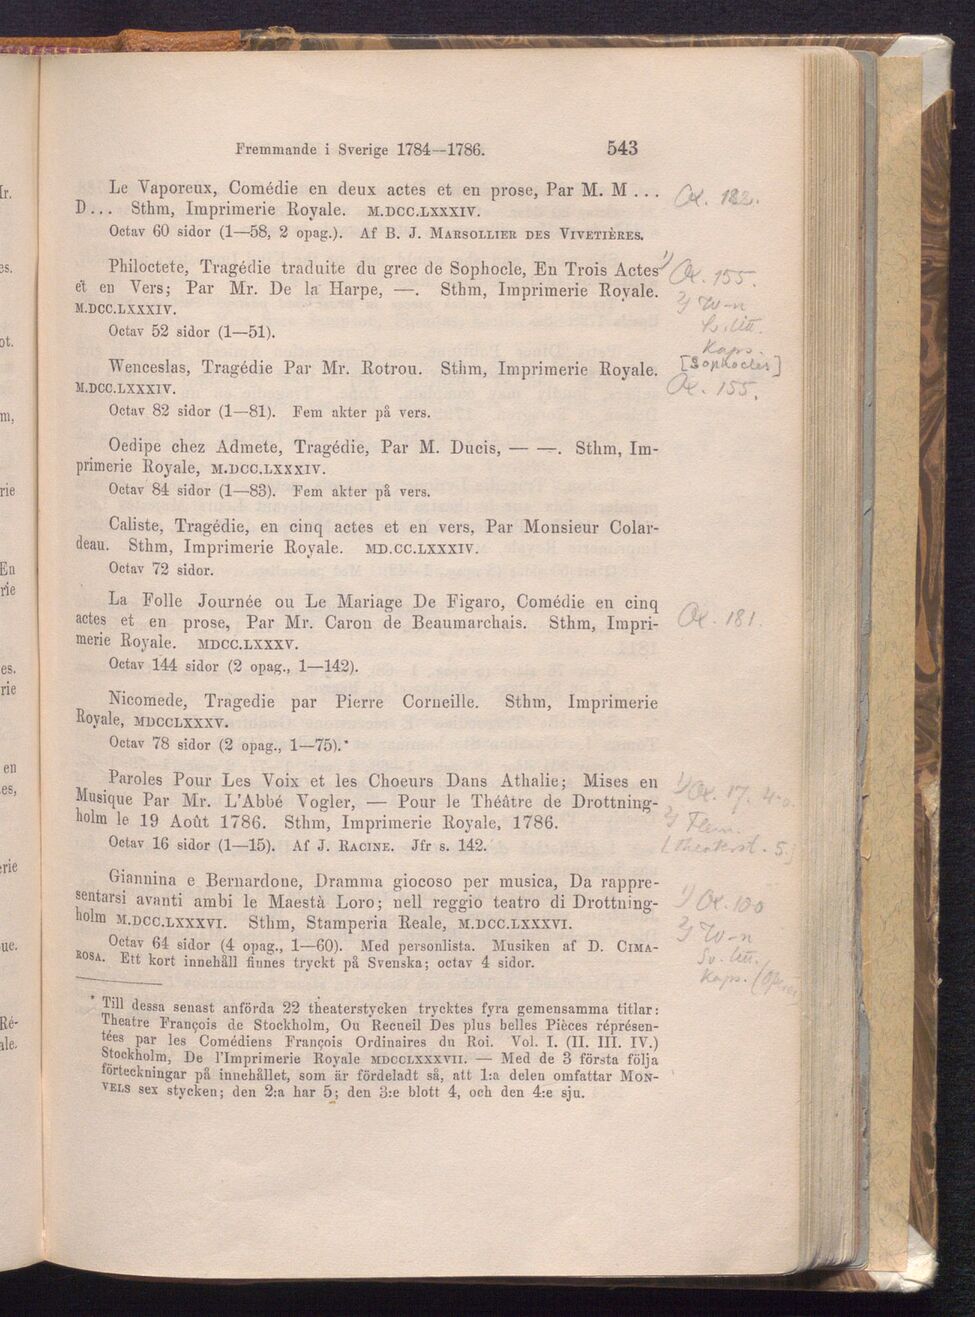 Fremmande i Sverige 1784—1786. 543
Le Vaporeux, Comédie en deux actes et en prose, Par M. M ...
D... Sthm, Imprimerie Royale. M.DCC.LXXXIV.
Octav 60 sidor (1—58, 2 opag.). Af B. J. MARSOLLIER DES VIVETIÈRES.
Ox. 182.
Philoctete, Tragédie traduite du grec de Sophocle, En Trois Actes
et en Vers; Par Mr. De la Harpe, —. Sthm, Imprimerie Royale.
M.DCC.LXXXIV.
Octav 52 sidor (1—51).
1) Ox. 155.
2) W-n
Kaps.
[Sophocles]
Wenceslas, Tragédie Par Mr. Rotrou. Sthm, Imprimerie Royale.
M.DCC.LXXXIV.
Octav 82 sidor (1—81). Fem akter på vers.
Ox. 155.
Oedipe chez Admete, Tragédie, Par M. Ducis, — —. Sthm, Im-
primerie Royale, M.DCC.LXXXIV.
Octav 84 sidor (1—83). Fem akter på vers.
Caliste, Tragédie, en cinq actes et en vers, Par Monsieur Colar-
deau. Sthm, Imprimerie Royale. MD.CC.LXXXIV.
Octav 72 sidor.
La Folle Journée ou Le Mariage De Figaro, Comédie en cinq
actes et en prose, Par Mr. Caron de Beaumarchais. Sthm, Impri-
merie Royale. MDCC.LXXXV.
Octav 144 sidor (2 opag., 1—142).
Ox. 181.
Nicomede, Tragedie par Pierre Corneille. Sthm, Imprimerie
Royale, MDCCLXXXV.
Octav 78 sidor (2 opag., 1—75).*
Paroles Pour Les Voix et les Choeurs Dans Athalie; Mises en
Musique Par Mr. L'Abbé Vogler, — Pour le Théâtre de Drottning-
holm le 19 Août 1786. Sthm, Imprimerie Royale, 1786.
Octav 16 sidor (1—15). Af J. RACINE. Jfr s. 142.
1) Ox. 17. 4-o.
2) Flem.
Giannina e Bernardone, Dramma giocoso per musica, Da rappre-
sentarsi avanti ambi le Maestà Loro; nell reggio teatro di Drottning-
holm M.DCC.LXXXVI. Sthm, Stamperia Reale, M.DCC.LXXXVI.
Octav 64 sidor (4 opag., 1—60). Med personlista. Musiken af D. CIMA-
ROSA. Ett kort innehåll finnes tryckt på Svenska; octav 4 sidor.
1) Ox. 100
2) W-n
Sv. litt.
Kaps.
* Till dessa senast anförda 22 theaterstycken trycktes fyra gemensamma titlar:
Theatre François de Stockholm, Ou Recueil Des plus belles Pièces réprésen-
tées par les Comédiens François Ordinaires du Roi. Vol. I. (II. III. IV.)
Stockholm, De l'Imprimerie Royale MDCCLXXXVII. — Med de 3 första följa
förteckningar på innehållet, som är fördeladt så, att 1:a delen omfattar MON-
VELS sex stycken; den 2:a har 5; den 3:e blott 4, och den 4:e sju.